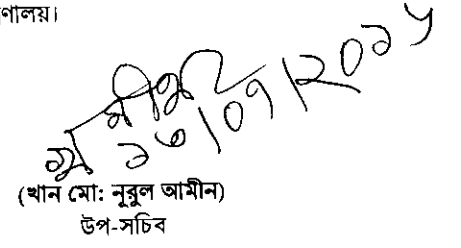 ণালয়।
১৩/০৭/২০১৮
(খান মো: নূরুল আমীন)
উপ-সচিব